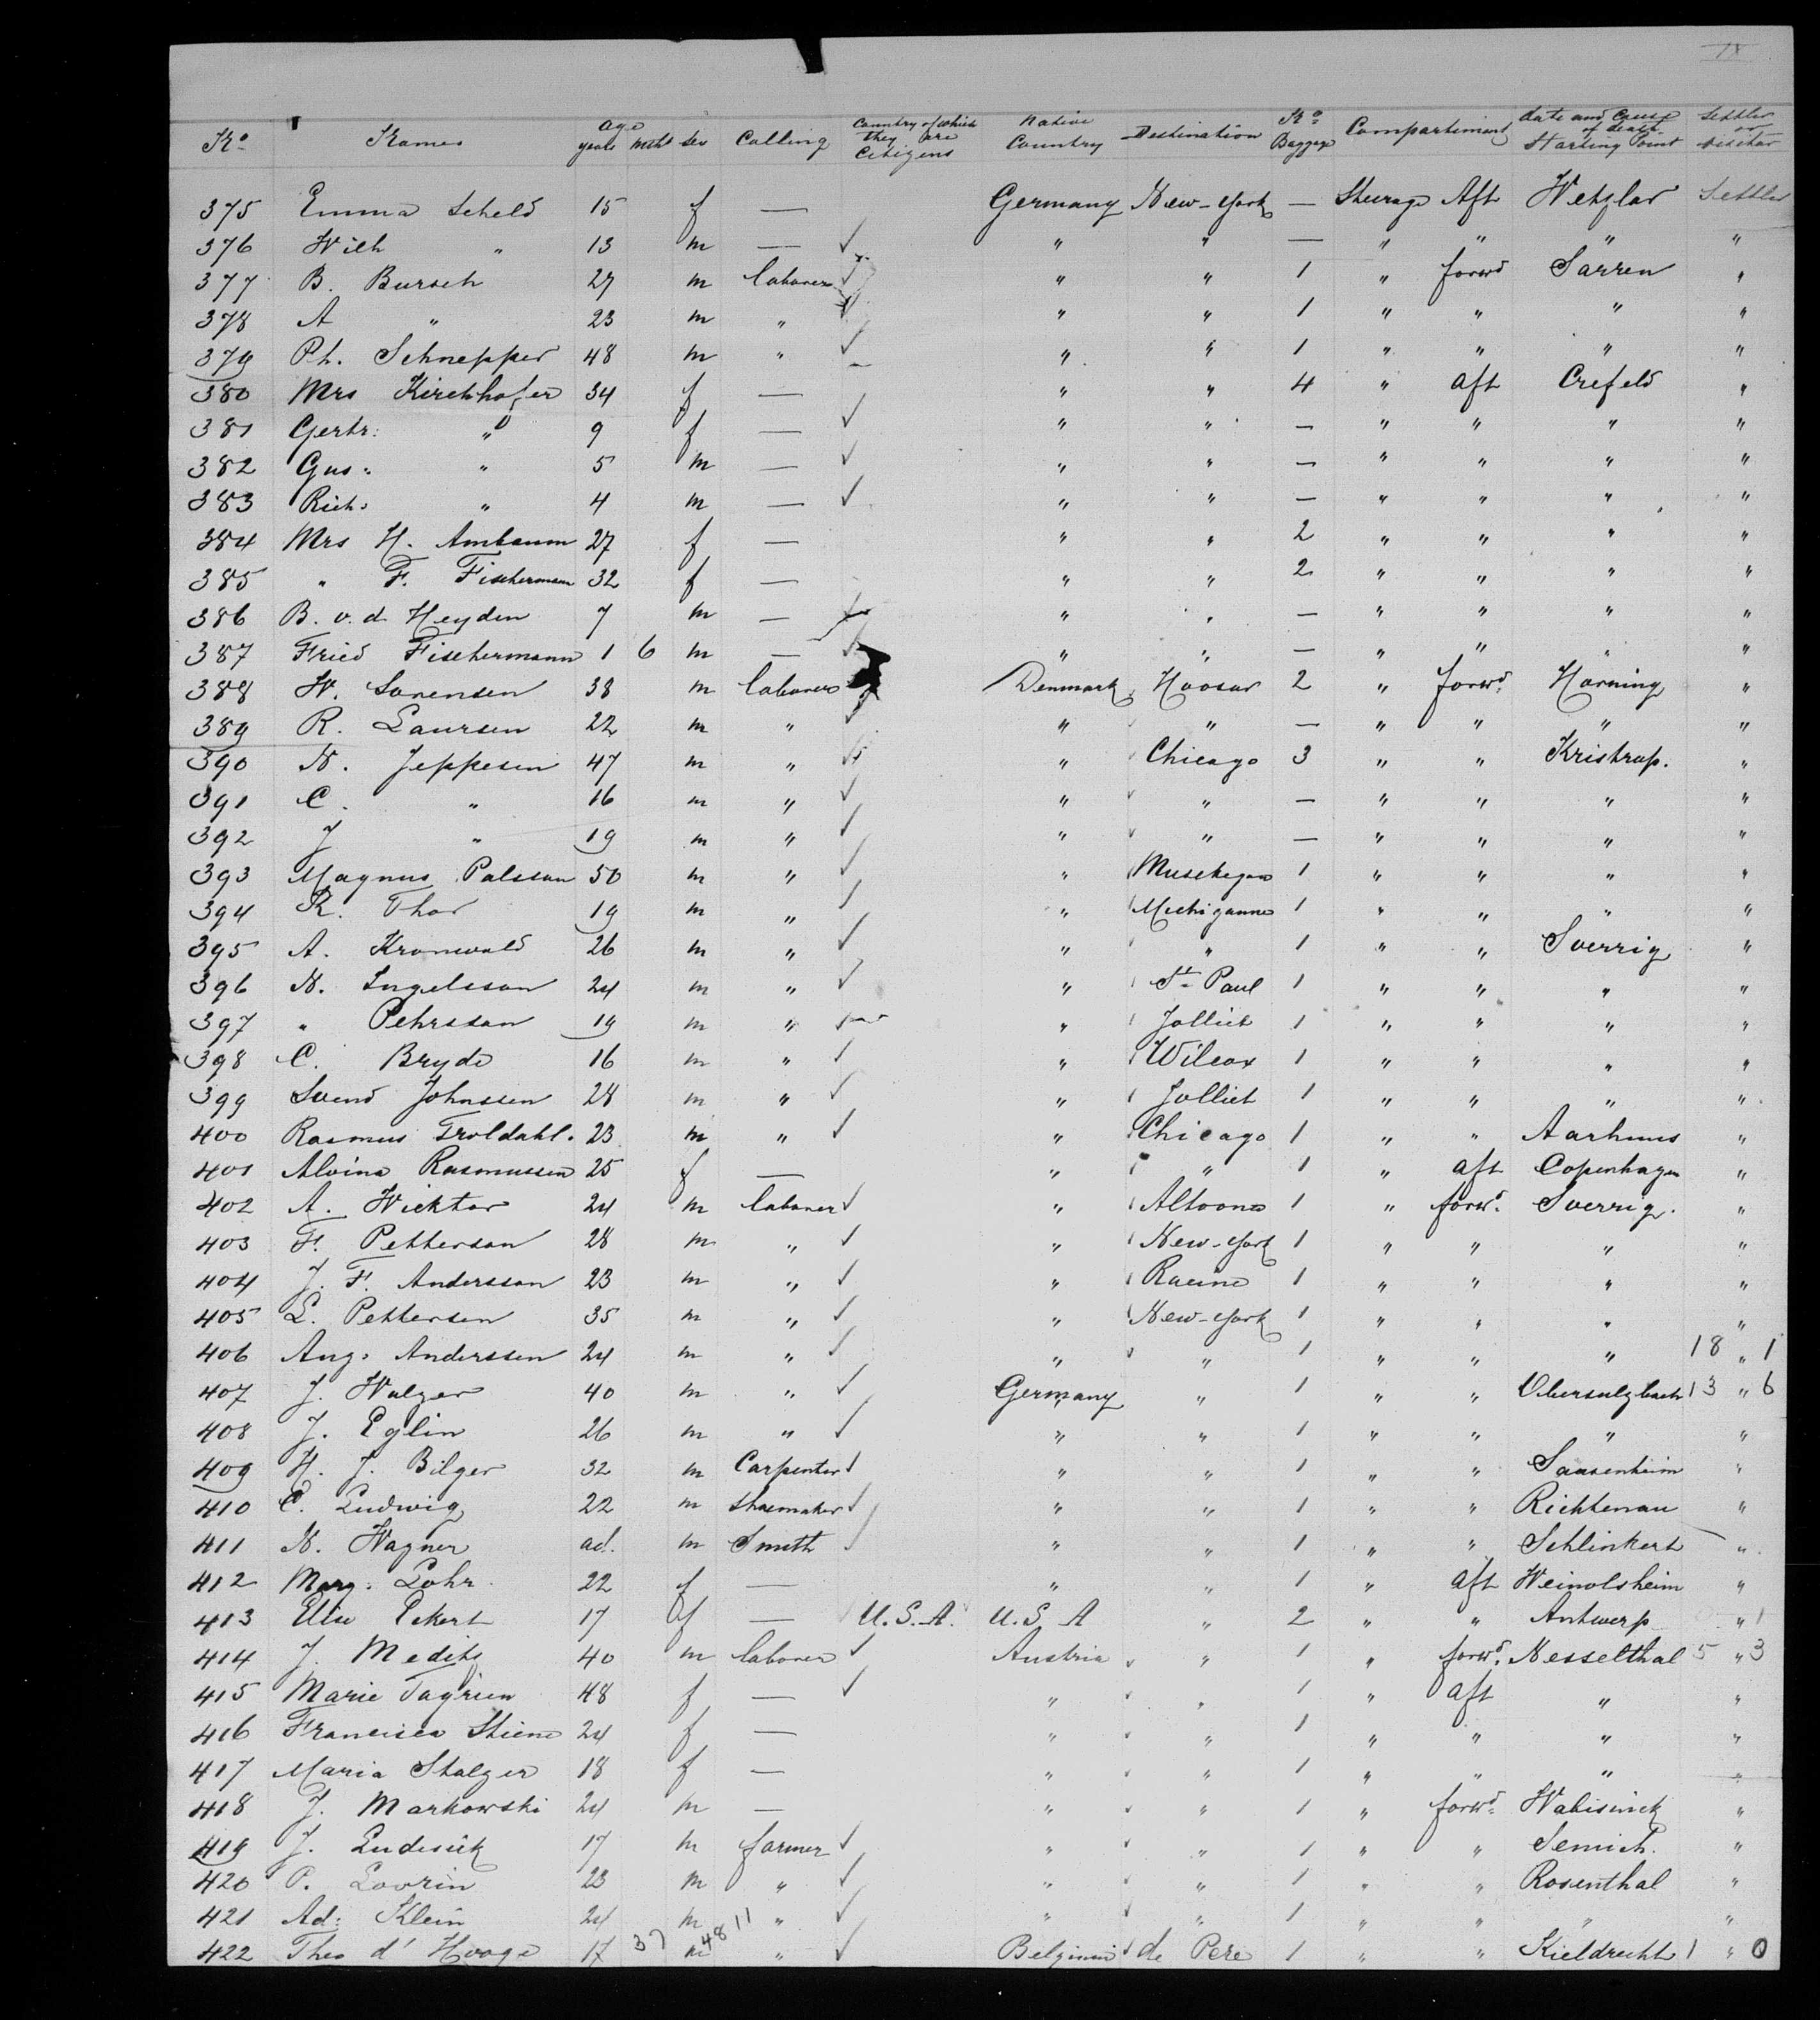 No Names age years mths sex Calling Country of which they are Citizens Native Country Destination No Baggage Compartiment date and Cause of death Starting Point Settler or visitor
375 Emma Scheld 15 f — Germany New-York — Steerage Aft Wetzlar Settler
376 Wilh " 13 m — ✓ " " — " " " "
377 B. Bursch 27 m laborer ✓ " " 1 " forwd Sarren "
378 A " 23 m " ✓ " " 1 " " " "
379 Ph. Schnepper 48 m " ✓ " " 1 " " " "
380 Mrs Kirchhofer 34 f — " " 4 " aft Crefeld "
381 Gertr: " 9 f — ✓ " " — " " " "
382 Gus: " 5 m — ✓ " " — " " " "
383 Rich: " 4 m — ✓ " " — " " " "
384 Mrs H. Ambaum 27 f — " " 2 " " " "
385 " F. Fischermann 32 f — " " 2 " " " "
386 B. v. d. Heyden 7 m — ✓ " " — " " " "
387 Fried Fischermann 1 6 m — ✓ " " — " " " "
388 W. Sorensen 38 m laborer Denmark Hoosar 2 " forwd. Horning "
389 R. Laursen 22 m " ✓ " " — " " " "
390 N. Jeppesen 47 m " ✓ " Chicago 3 " " Kristrup. "
391 C. " 16 m " ✓ " " — " " " "
392 J " 19 m " ✓ " " — " " " "
393 Magnus Palsson 50 m " ✓ " Musckegon 1 " " " "
394 K. Thor 19 m " ✓ " Michiganne 1 " " " "
395 A. Kronwald 26 m " ✓ " " 1 " " Sverrig "
396 N. Ingelsson 24 m " ✓ " St Paul 1 " " " "
397 " Pehrsson 19 m " ✓ " Jolliet 1 " " " "
398 C. Bryde 16 m " ✓ " Wilcox 1 " " " "
399 Svend Johnssen 28 m " ✓ " Jolliet 1 " " " "
400 Rasmus Troldahl. 23 m " ✓ " Chicago 1 " " Aarhuus "
401 Alvina Rasmussen 25 f — " " 1 " aft Copenhagen "
402 A. Wicktor 24 m laborer ✓ " Altoona 1 " forwd. Sverrig. "
403 F. Petterson 28 m " ✓ " New-York 1 " " " "
404 J. F. Andersson 23 m " ✓ " Racine 1 " " " "
405 L. Pettersen 35 m " ✓ " New-York 1 " " " "
406 Aug: Anderssen 24 m " ✓ " " 1 " " " 18 " 1
407 J. Walzer 40 m " ✓ Germany " 1 " " Obersulzbach 13 " 6
408 J. Eglin 26 m " ✓ " " 1 " " " "
409 H. J. Bilger 32 m Carpenter ✓ " " 1 " " Saasenheim "
410 C. Ludwig 22 m shoemaker ✓ " " 1 " " Richtenau "
411 N. Wagner ad. m Smith ✓ " " 1 " " Schlinkert "
412 Marg: Lohr 22 f — " " 1 " aft Weinolsheim "
413 Elise Eckert 17 f — U.S.A. U.S A " 2 " " Antwerp " 1
414 J. Meditz 40 m laborer ✓ Austria " 1 " forwd. Nesselthal 5 " 3
415 Marie Tagrien 48 f — ✓ " " 1 " aft " "
416 Francisca Stiene 24 f — " " 1 " " " "
417 Maria Stalzer 18 f — " " 1 " " " "
418 J. Markowski 24 m — " " 1 " forwd.
419 J. 17 m farmer ✓ " " 1 " " Semich. "
420 P. Lovrin 23 m " ✓ " " 1 " " Rosenthal "
421 Ad: Klein 24 m " ✓ " " 1 " " " "
422 Theo d' Hooge 17 37 m 48 11 " ✓ Belgium de Pere 1 " " Kieldrecht 1 " 0